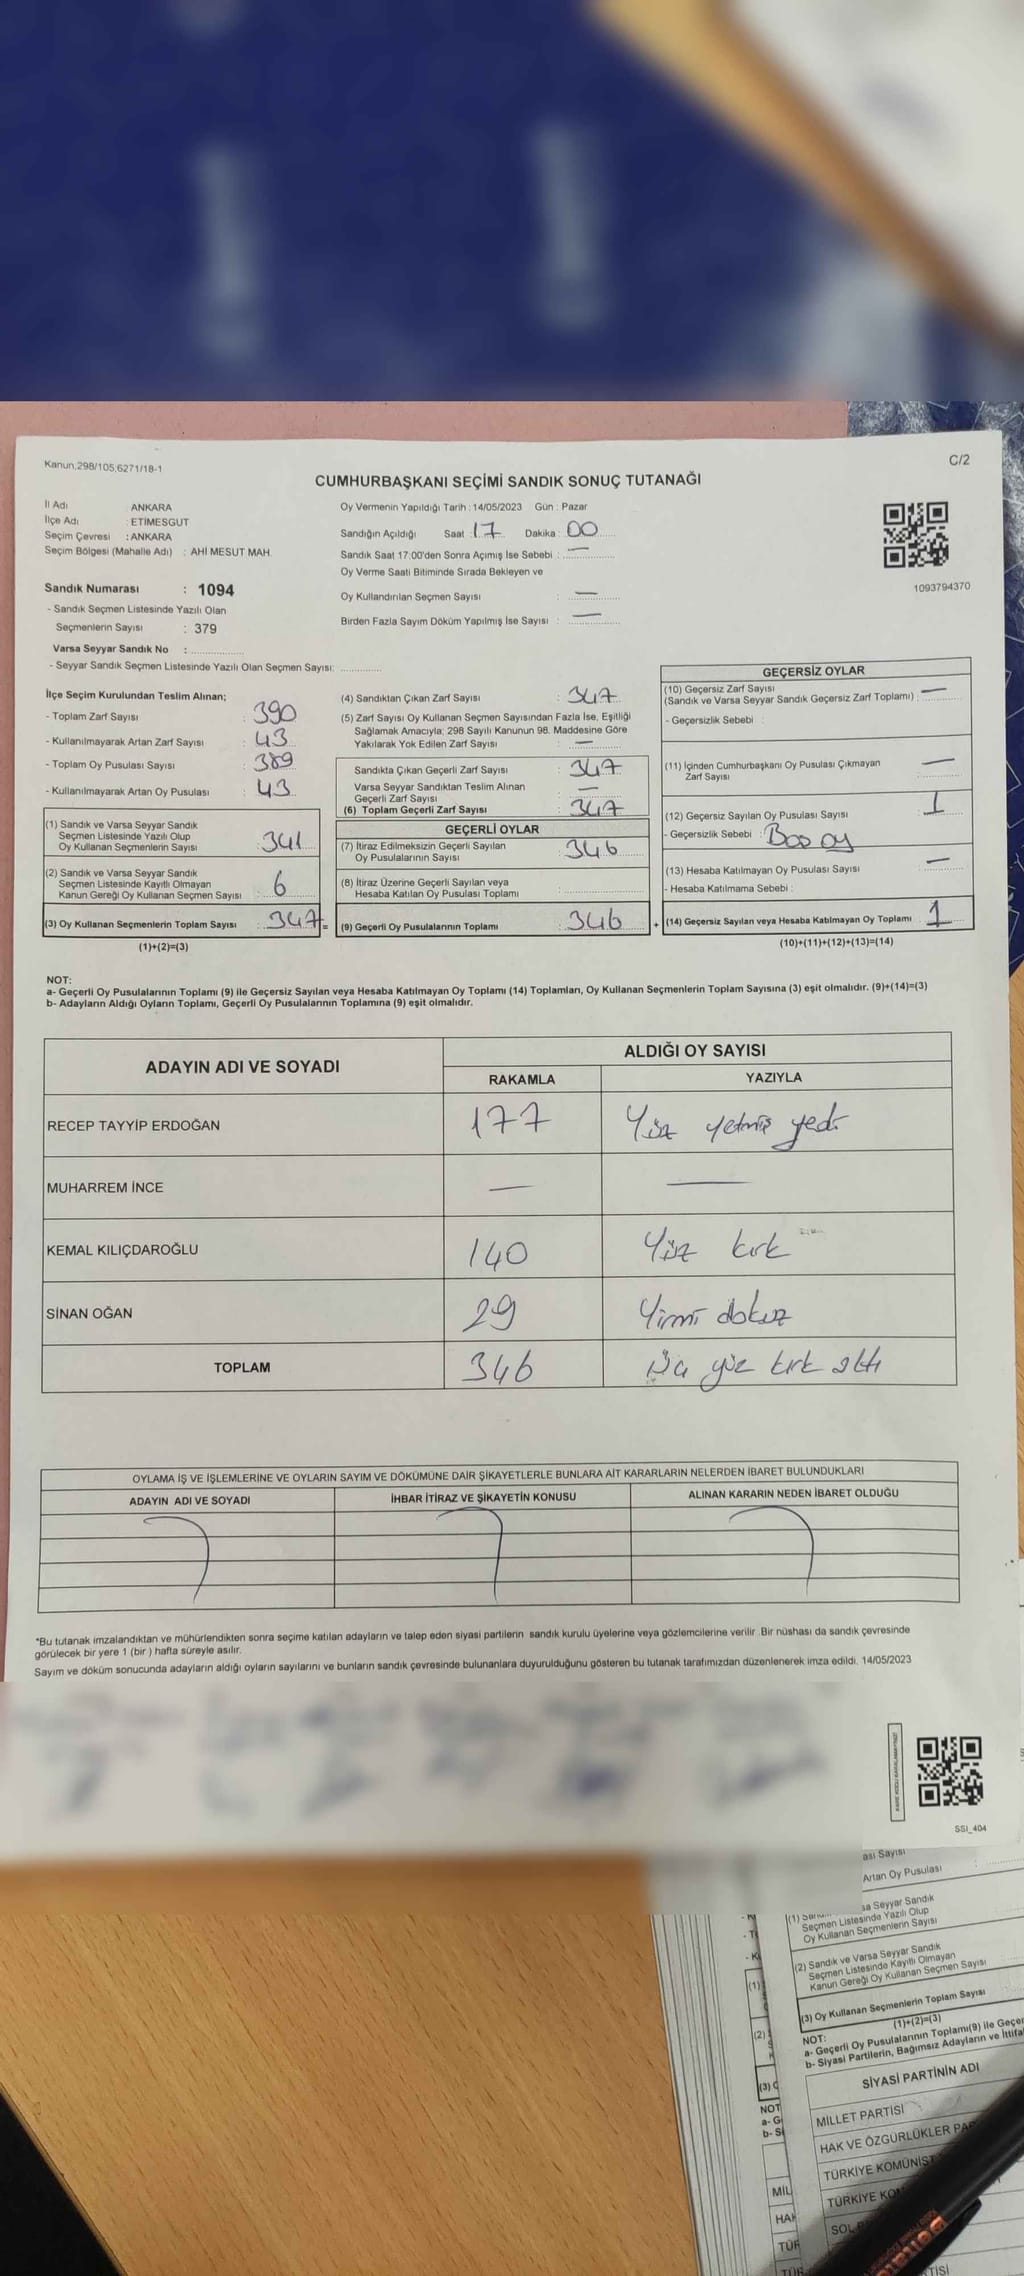 Kanun,298/105,6271/18-1
C/2
CUMHURBAŞKANI SEÇİMİ SANDIK SONUÇ TUTANAĞI
İl Adı ANKARA
İlçe Adı : ETİMESGUT
Seçim Çevresi : ANKARA
Seçim Bölgesi (Mahalle Adı) : AHİ MESUT MAH.
Oy Vermenin Yapıldığı Tarih : 14/05/2023 Gün : Pazar
Sandığın Açıldığı Saat 17 Dakika : 00
Sandık Saat 17:00'den Sonra Açımış İse Sebebi : —
Oy Verme Saati Bitiminde Sırada Bekleyen ve
Oy Kullandırılan Seçmen Sayısı : —
Birden Fazla Sayım Döküm Yapılmış İse Sayısı : —
1093794370
Sandık Numarası : 1094
- Sandık Seçmen Listesinde Yazılı Olan
Seçmenlerin Sayısı : 379
Varsa Seyyar Sandık No :
- Seyyar Sandık Seçmen Listesinde Yazılı Olan Seçmen Sayısı:
İlçe Seçim Kurulundan Teslim Alınan;
- Toplam Zarf Sayısı : 390
- Kullanılmayarak Artan Zarf Sayısı : 43
- Toplam Oy Pusulası Sayısı : 389
- Kullanılmayarak Artan Oy Pusulası : 43
(1) Sandık ve Varsa Seyyar Sandık
Seçmen Listesinde Yazılı Olup
Oy Kullanan Seçmenlerin Sayısı : 341
(2) Sandık ve Varsa Seyyar Sandık
Seçmen Listesinde Kayıtlı Olmayan
Kanun Gereği Oy Kullanan Seçmen Sayısı : 6
(3) Oy Kullanan Seçmenlerin Toplam Sayısı : 347 =
(1)+(2)=(3)
(4) Sandıktan Çıkan Zarf Sayısı : 347
(5) Zarf Sayısı Oy Kullanan Seçmen Sayısından Fazla İse, Eşitliği
Sağlamak Amacıyla; 298 Sayılı Kanunun 98. Maddesine Göre
Yakılarak Yok Edilen Zarf Sayısı : —
Sandıkta Çıkan Geçerli Zarf Sayısı : 347
Varsa Seyyar Sandıktan Teslim Alınan
Geçerli Zarf Sayısı : —
(6) Toplam Geçerli Zarf Sayısı : 347
GEÇERLİ OYLAR
(7) İtiraz Edilmeksizin Geçerli Sayılan
Oy Pusulalarının Sayısı : 346
(8) İtiraz Üzerine Geçerli Sayılan veya
Hesaba Katılan Oy Pusulası Toplamı :
(9) Geçerli Oy Pusulalarının Toplamı : 346 +
GEÇERSİZ OYLAR
(10) Geçersiz Zarf Sayısı
(Sandık ve Varsa Seyyar Sandık Geçersiz Zarf Toplamı) : —
- Geçersizlik Sebebi :
(11) İçinden Cumhurbaşkanı Oy Pusulası Çıkmayan
Zarf Sayısı : —
(12) Geçersiz Sayılan Oy Pusulası Sayısı : 1
- Geçersizlik Sebebi : Boş oy
(13) Hesaba Katılmayan Oy Pusulası Sayısı : —
- Hesaba Katılmama Sebebi :
(14) Geçersiz Sayılan veya Hesaba Katılmayan Oy Toplamı : 1
(10)+(11)+(12)+(13)=(14)
NOT:
a- Geçerli Oy Pusulalarının Toplamı (9) ile Geçersiz Sayılan veya Hesaba Katılmayan Oy Toplamı (14) Toplamları, Oy Kullanan Seçmenlerin Toplam Sayısına (3) eşit olmalıdır. (9)+(14)=(3)
b- Adayların Aldığı Oyların Toplamı, Geçerli Oy Pusulalarının Toplamına (9) eşit olmalıdır.
ADAYIN ADI VE SOYADI
ALDIĞI OY SAYISI
RAKAMLA YAZIYLA
RECEP TAYYİP ERDOĞAN 177 Yüz yetmiş yedi
MUHARREM İNCE — —
KEMAL KILIÇDAROĞLU 140 Yüz kırk
SİNAN OĞAN 29 Yirmi dokuz
TOPLAM 346 Üç yüz kırk altı
OYLAMA İŞ VE İŞLEMLERİNE VE OYLARIN SAYIM VE DÖKÜMÜNE DAİR ŞİKAYETLERLE BUNLARA AİT KARARLARIN NELERDEN İBARET BULUNDUKLARI
ADAYIN ADI VE SOYADI İHBAR İTİRAZ VE ŞİKAYETİN KONUSU ALINAN KARARIN NEDEN İBARET OLDUĞU
*Bu tutanak imzalandıktan ve mühürlendikten sonra seçime katılan adayların ve talep eden siyasi partilerin sandık kurulu üyelerine veya gözlemcilerine verilir .Bir nüshası da sandık çevresinde
görülecek bir yere 1 (bir ) hafta süreyle asılır.
Sayım ve döküm sonucunda adayların aldığı oyların sayılarını ve bunların sandık çevresinde bulunanlara duyurulduğunu gösteren bu tutanak tarafımızdan düzenlenerek imza edildi. 14/05/2023
SSI_404
Sayısı
Artan Oy Pusulası
Seyyar Sandık
Seçmen Listesinde Yazılı Olup
Oy Kullanan Seçmenlerin Sayısı
(2) Sandık ve Varsa Seyyar Sandık
Seçmen Listesinde Kayıtlı Olmayan
Kanun Gereği Oy Kullanan Seçmen Sayısı
(3) Oy Kullanan Seçmenlerin Toplam Sayısı
(1)+(2)=(3)
NOT:
a- Geçerli Oy Pusulalarının Toplamı(9) ile
b- Siyasi Partilerin, Bağımsız Adayların ve
SİYASİ PARTİNİN ADI
MİLLET PARTİSİ
HAK VE ÖZGÜRLÜKLER
TÜRKİYE KOMÜNİST
TÜRKİYE
SOL